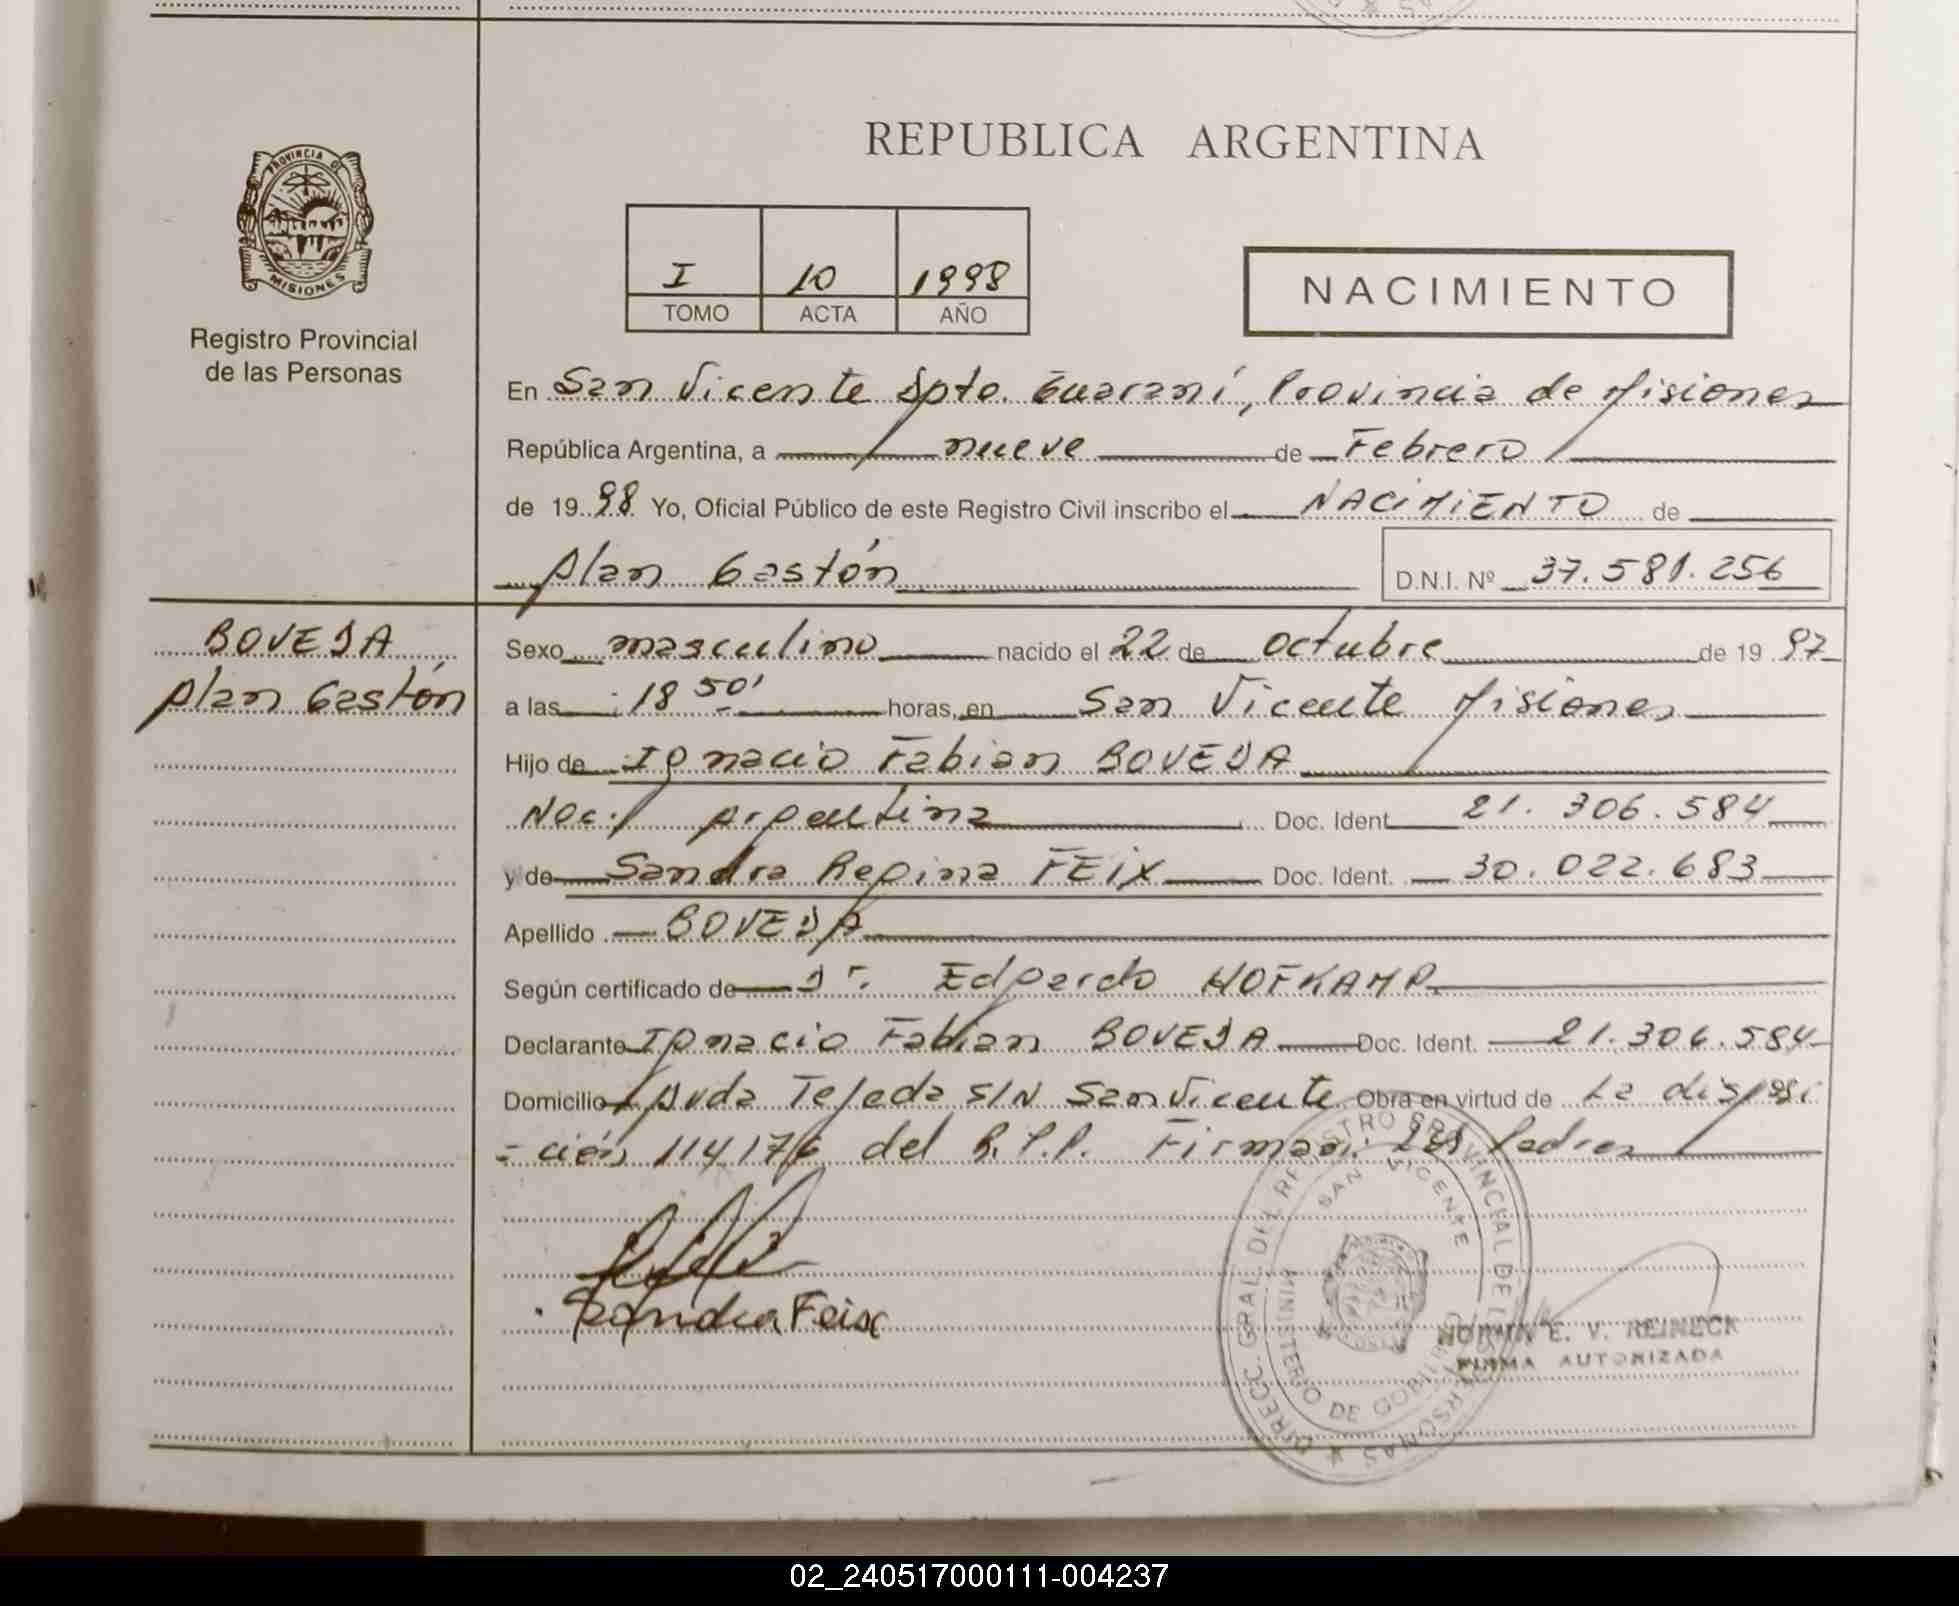 REPUBLICA ARGENTINA
PROVINCIA DE MISIONES
Registro Provincial
de las Personas
I 10 1998
TOMO ACTA AÑO
NACIMIENTO
En San Vicente Dpto. Guaraní, Provincia de Misiones
República Argentina, a nueve de Febrero
de 1998 Yo, Oficial Público de este Registro Civil inscribo el NACIMIENTO de
Alan Gastón D.N.I. Nº 37.581.256
BOVEDA
Alan Gastón
Sexo masculino nacido el 22 de octubre de 1997
a las 18 50' horas, en San Vicente Misiones
Hijo de Ignacio Fabian BOVEDA
Nac. Argentina Doc. Ident. 21.306.584
y de Sandra Regina FEIX Doc. Ident. 30.022.683
Apellido BOVEDA
Según certificado de Dr. Edgardo HOFKAMP
Declarante Ignacio Fabian BOVEDA Doc. Ident. 21.306.584
Domicilio Avda Tejeda S/N San Vicente Obra en virtud de La disposi
-ción 114176 del R.P.P. Firman: Los Padres
Sandra Feix
DIRECC. GRAL. DEL REGISTRO PROVINCIAL DE LAS PERSONAS
SAN VICENTE
MINISTERIO DE GOBIERNO
E. V. REINECK
FIRMA AUTORIZADA
02_240517000111-004237